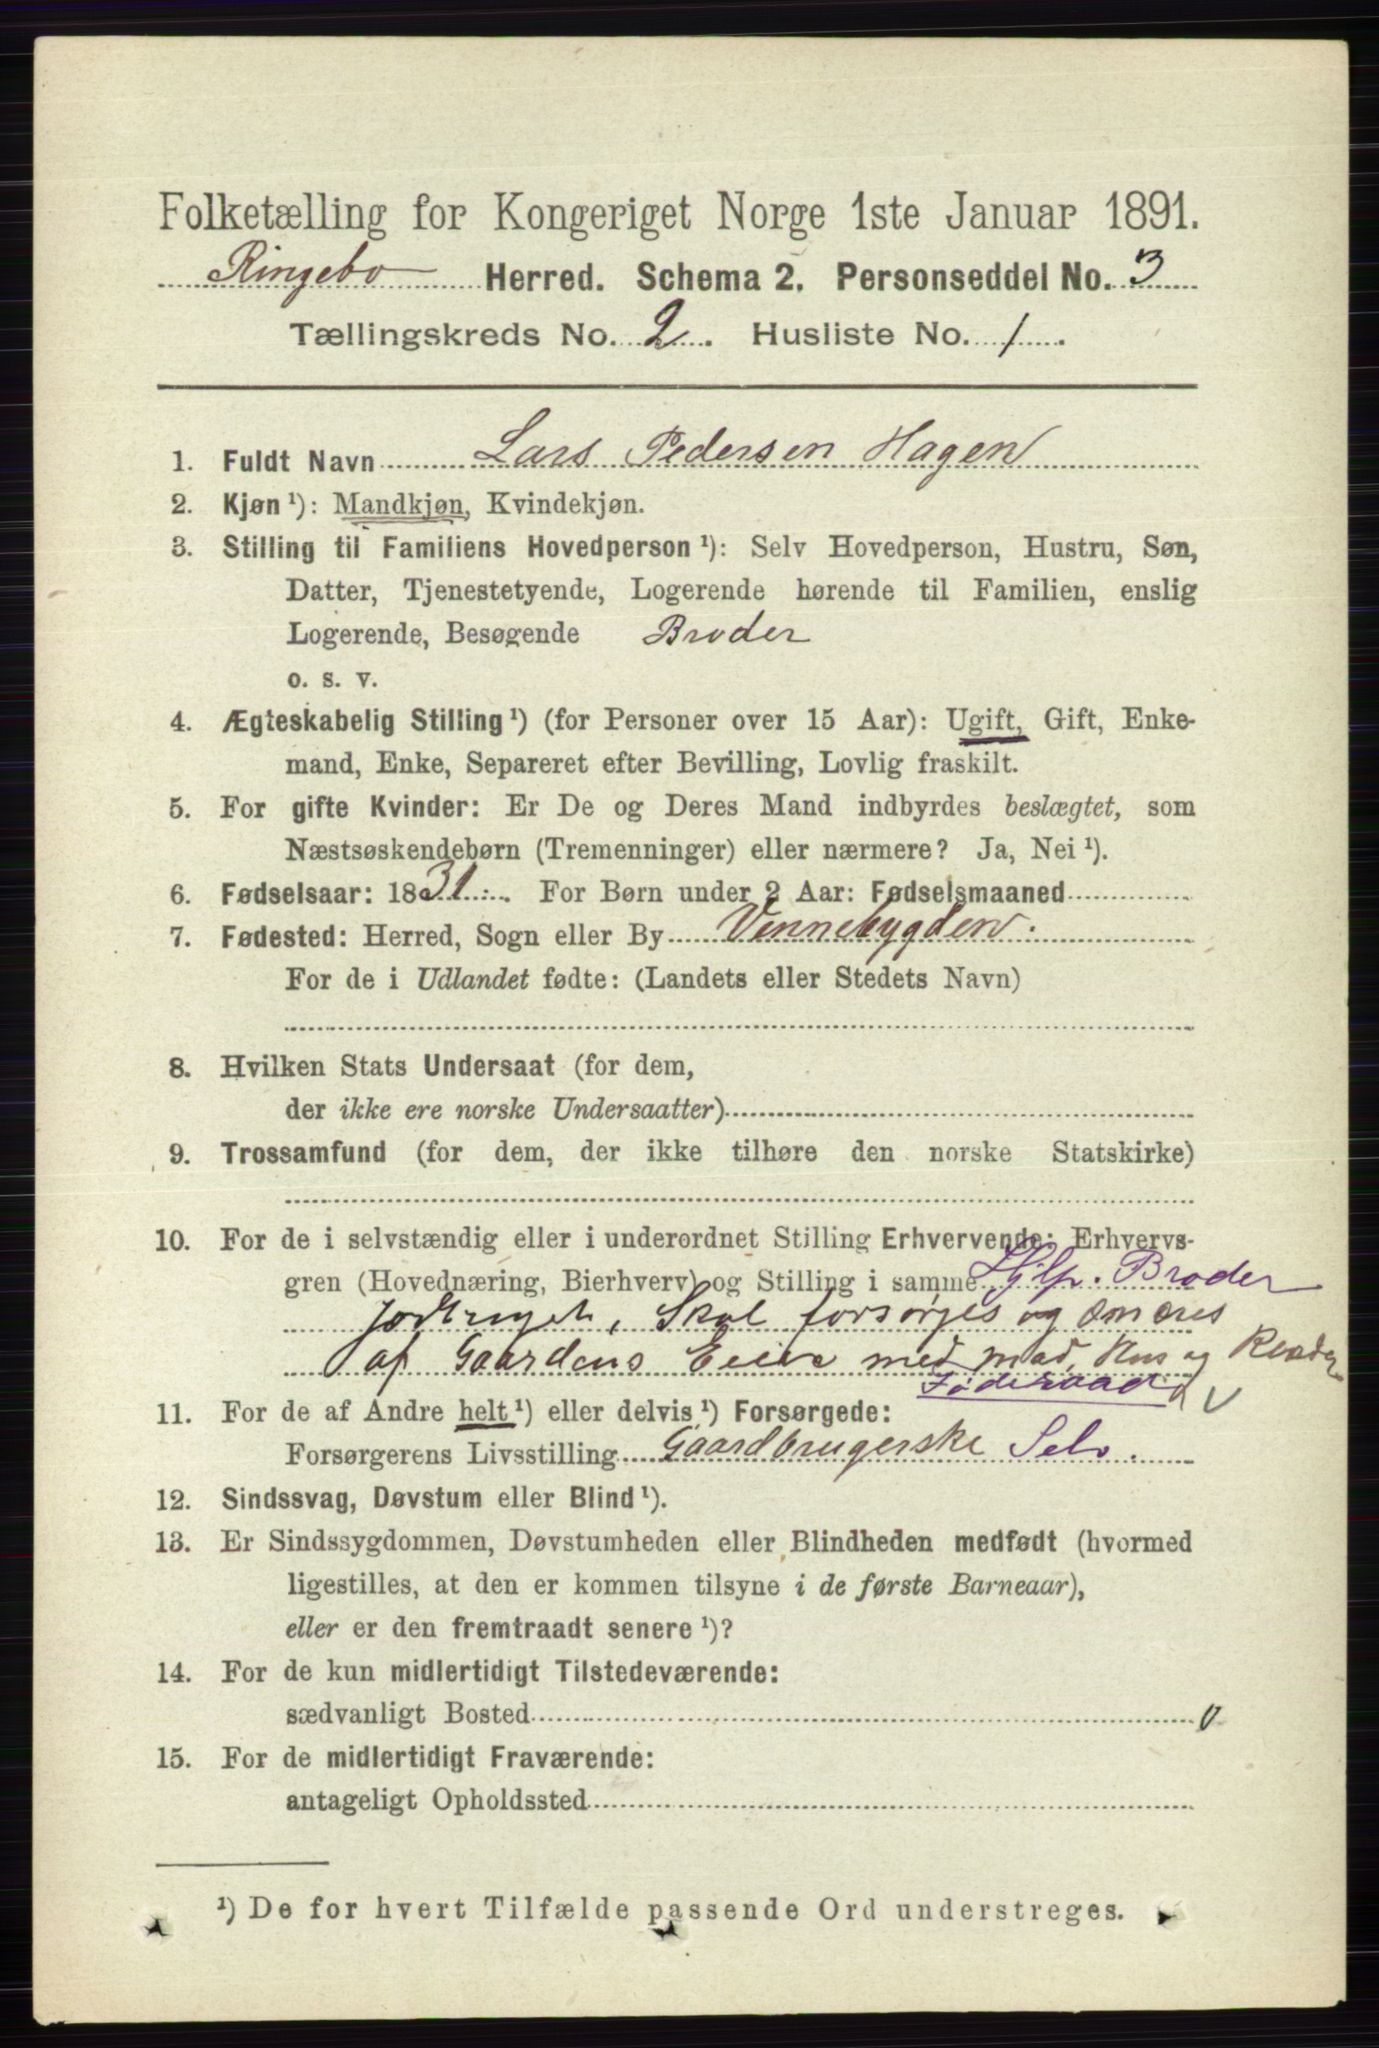 Folketælling for Kongeriget Norge 1ste Januar 1891.
Ringebo Herred. Schema 2. Personseddel No. 3
Tællingskreds No. 2. Husliste No. 1.
1. Fuldt Navn Lars Pedersen Hagen
2. Kjøn ¹): Mandkjøn, Kvindekjøn.
3. Stilling til Familiens Hovedperson ¹): Selv Hovedperson, Hustru, Søn,
Datter, Tjenestetyende, Logerende hørende til Familien, enslig
Logerende, Besøgende Broder
o. s. v.
4. Ægteskabelig Stilling ¹) (for Personer over 15 Aar): Ugift, Gift, Enke-
mand, Enke, Separeret efter Bevilling, Lovlig fraskilt.
5. For gifte Kvinder: Er De og Deres Mand indbyrdes beslægtet, som
Næstsøskendebørn (Tremenninger) eller nærmere? Ja, Nei ¹).
6. Fødselsaar: 1831. For Børn under 2 Aar: Fødselsmaaned
7. Fødested: Herred, Sogn eller By Vennebygden.
For de i Udlandet fødte: (Landets eller Stedets Navn)
8. Hvilken Stats Undersaat (for dem,
der ikke ere norske Undersaatter)
9. Trossamfund (for dem, der ikke tilhøre den norske Statskirke)
10. For de i selvstændig eller i underordnet Stilling Erhvervende: Erhvervs-
gren (Hovednæring, Bierhverv) og Stilling i samme Hjlp. Broder
Skal forsørges og
af Gaardens Eeier med Mad, Hus og Klæder
Føderaad V
11. For de af Andre helt ¹) eller delvis ¹) Forsørgede:
Forsørgerens Livsstilling Gaardbrugerske Selv.
12. Sindssvag, Døvstum eller Blind ¹).
13. Er Sindssygdommen, Døvstumheden eller Blindheden medfødt (hvormed
ligestilles, at den er kommen tilsyne i de første Barneaar),
eller er den fremtraadt senere ¹)?
14. For de kun midlertidigt Tilstedeværende:
sædvanligt Bosted 0
15. For de midlertidigt Fraværende:
antageligt Opholdssted
¹) De for hvert Tilfælde passende Ord understreges.